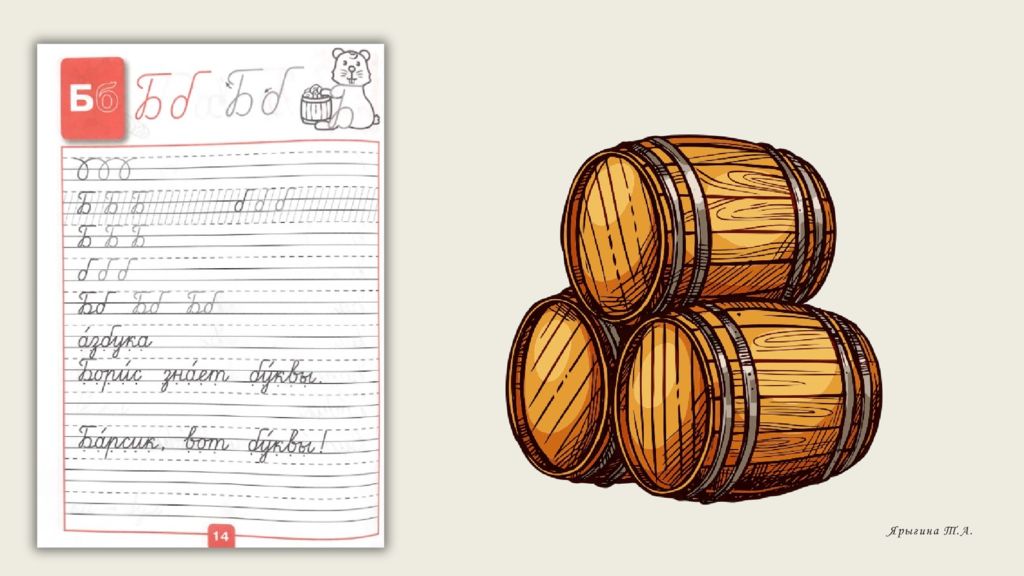 Бб Бб Бб
Б Б Б б б б
Б Б Б
б б б
Бб Бб Бб
а́збука
Бори́с зна́ет бу́квы.
Ба́рсик, вот бу́квы!
14
Ярыгина Т.А.